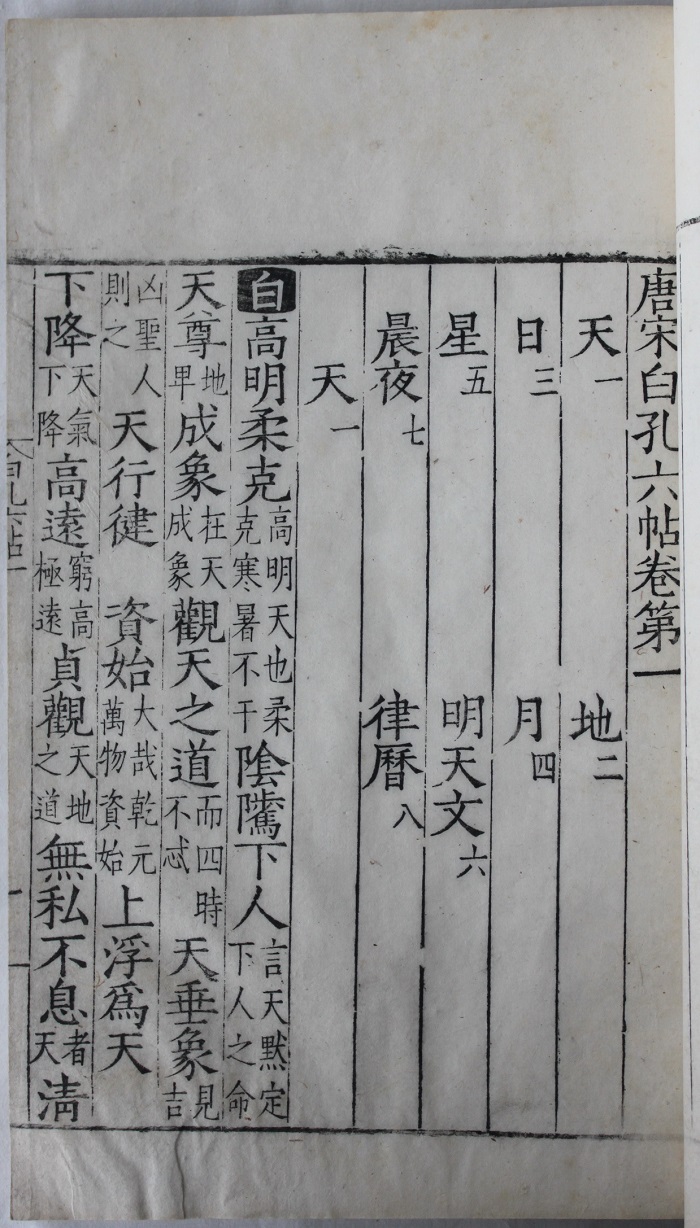 唐宋白孔六帖卷第一
天一 地二
日三 月四
星五 明天文六
晨夜七 律曆八
天一
白高明柔克高明天也柔克寒暑不干陰騭下人言天默定下人之命
天尊地卑成象在天成象觀天之道而四時不忒天垂象見吉
凶聖人則之天行健 資始大哉乾元萬物資始上浮為天
下降天氣下降高遠窮高極遠貞觀天地之道無私不息者天清